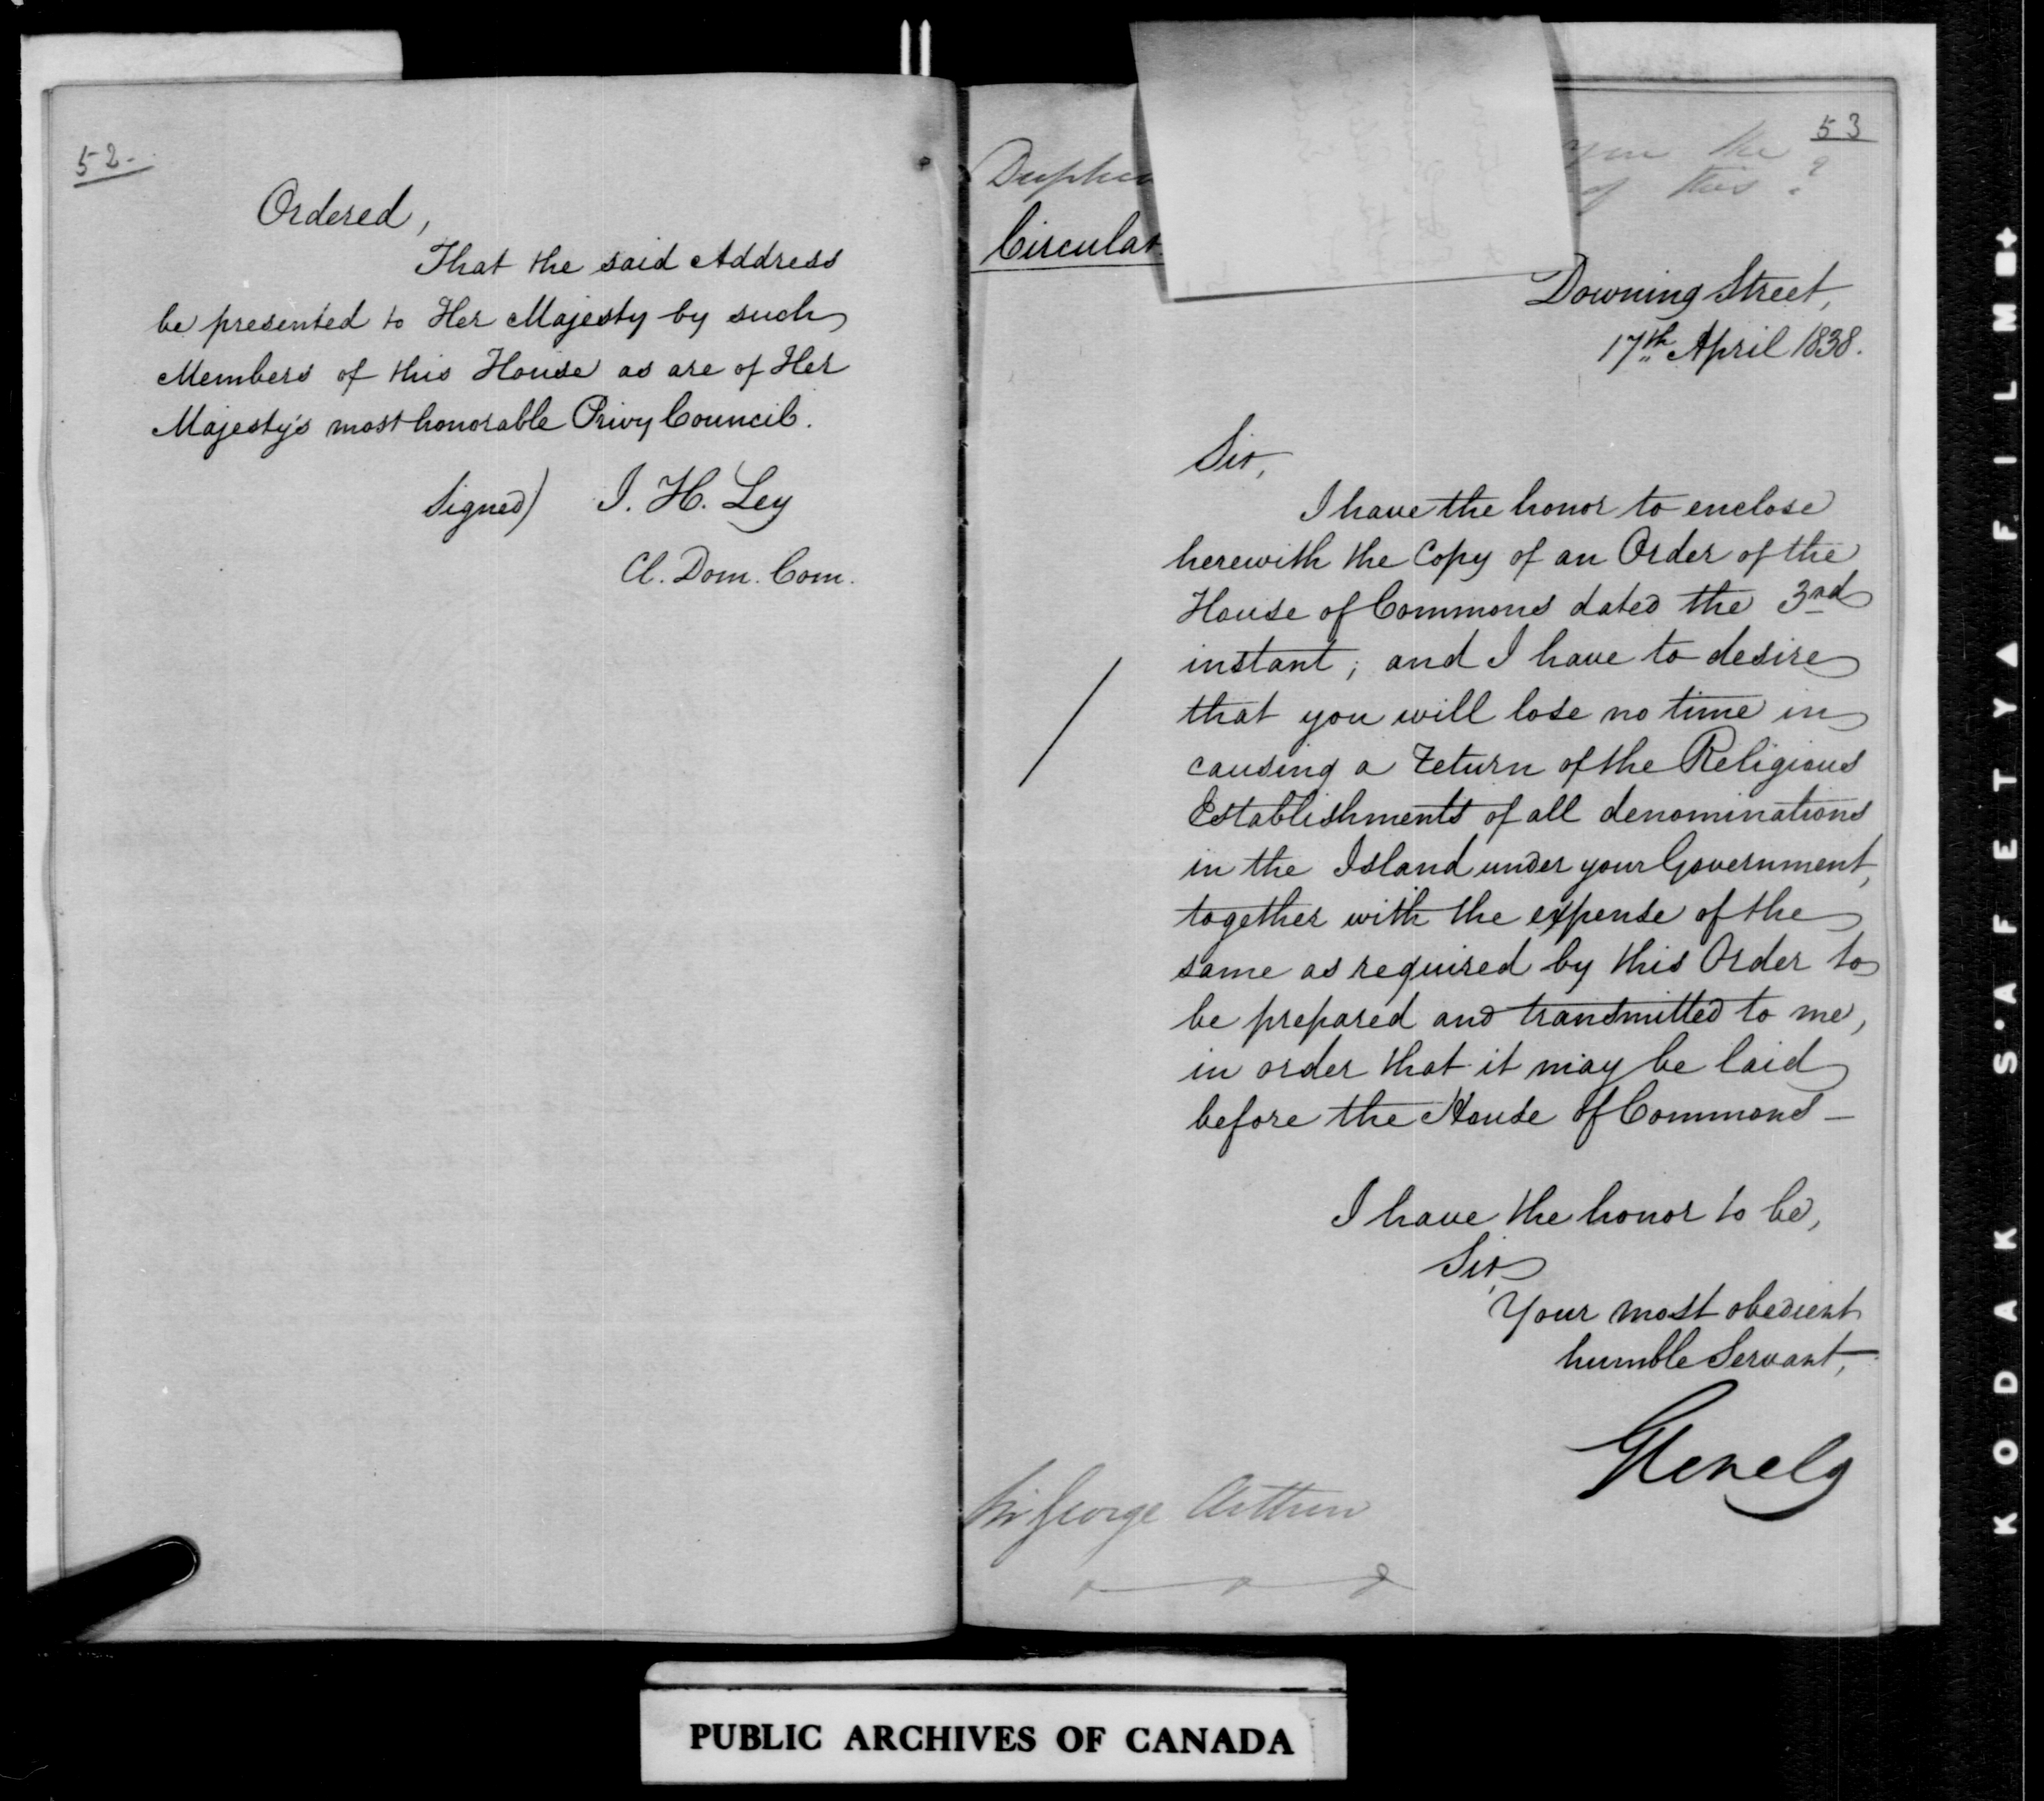 52.
Ordered,
That the said Address
be presented to Her Majesty by such
Members of this House as are of Her
Majesty's most honorable Privy Council.
Signed) J. H. Ley
Cl. Dom. Com.
53
you the
of this ?
Circular.
Downing Street,
17th April 1838.
Sir,
I have the honor to enclose
herewith the Copy of an Order of the
House of Commons dated the 3rd
instant; and I have to desire
that you will lose no time in
causing a return of the Religious
Establishments of all denominations
in the Island under your Government,
together with the expense of the
same as required by this Order to
be prepared and transmitted to me,
in order that it may be laid
before the House of Commons —
I have the honor to be,
Sir,
Your most obedient
humble Servant,
Glenelg
Sir George Arthur
PUBLIC ARCHIVES OF CANADA
KODAK S·A·F·E·T·Y▲ FILM